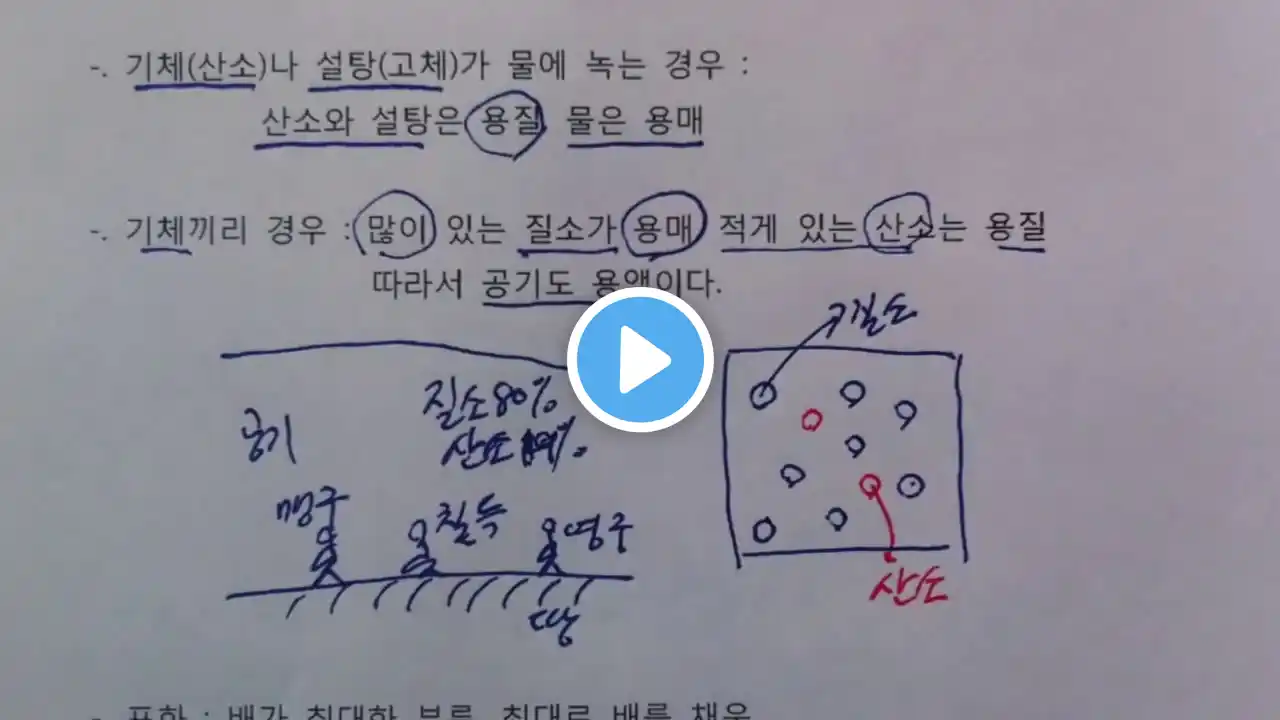 -. 기체(산소)나 설탕(고체)가 물에 녹는 경우 :
산소와 설탕은 용질 물은 용매
-. 기체끼리 경우 : 많이 있는 질소가 용매 적게 있는 산소는 용질
따라서 공기도 용액이다.
질소
공기
질소 80%
산소
맹구
칠득
영구
땅
산소
-. 포화 : 배가 최대한 부름, 최대로 배를 채움